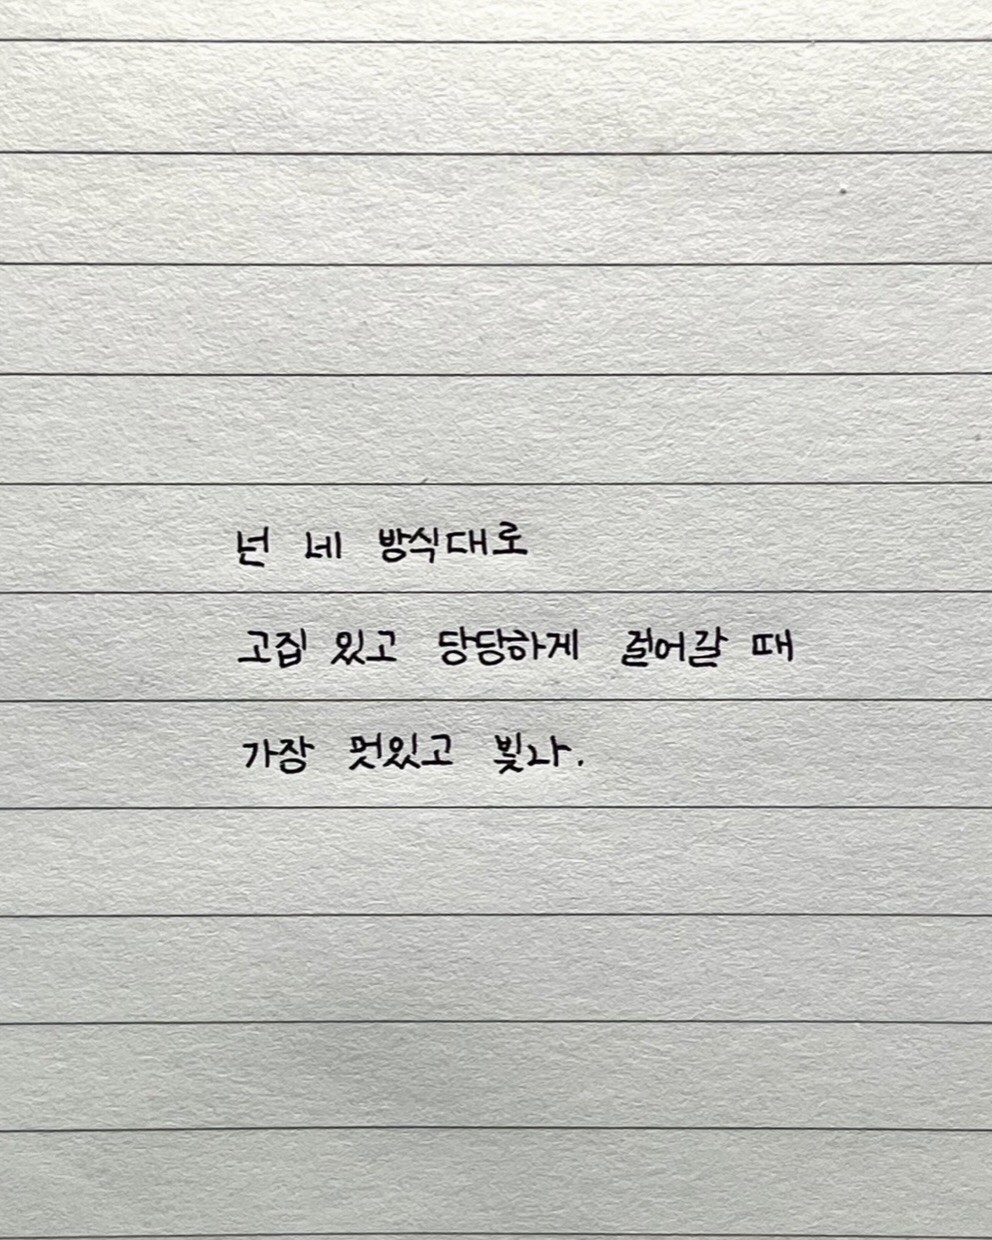 넌 네 방식대로
고집 있고 당당하게 걸어갈 때
가장 멋있고 빛나.